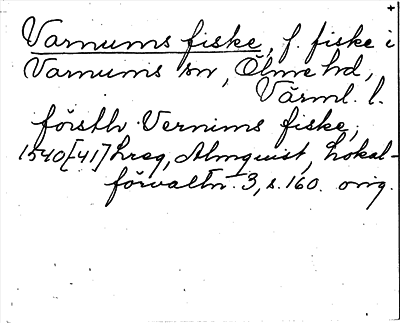 +
Varnums fiske, f. fiske i
Varnums sn, Ölme hd,
Värml. l.
förslh Vernims fiske,
1540[-41] hreg, Almquist, Lokal-
förvaltn. 3, s. 160. orig.